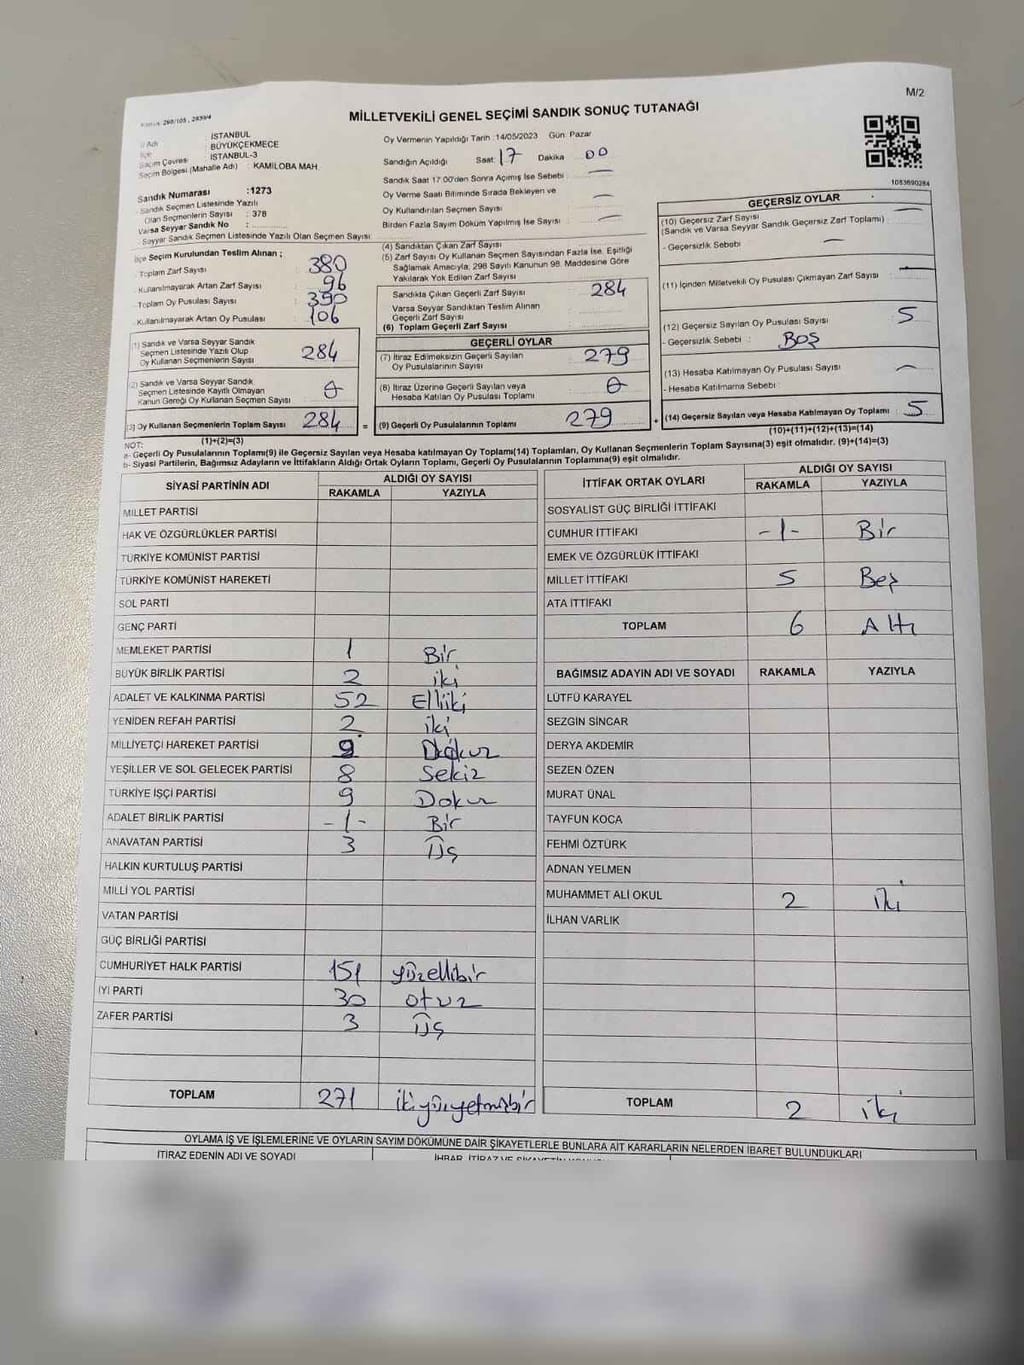 M/2
MİLLETVEKİLİ GENEL SEÇİMİ SANDIK SONUÇ TUTANAĞI
İl Adı : İSTANBUL
İlçe : BÜYÜKÇEKMECE
Seçim Çevresi : İSTANBUL-3
Seçim Bölgesi (Mahalle Adı) : KAMİLOBA MAH.
Sandık Numarası :1273
Sandık Seçmen Listesinde Yazılı
Olan Seçmenlerin Sayısı : 378
Varsa Seyyar Sandık No :
Seyyar Sandık Seçmen Listesinde Yazılı Olan Seçmen Sayısı :
Oy Vermenin Yapıldığı Tarih :14/05/2023 Gün: Pazar
Sandığın Açıldığı Saat: 17 Dakika 00
Sandık Saat 17:00'den Sonra Açılmış İse Sebebi : —
Oy Verme Saati Bitiminde Sırada Bekleyen ve
Oy Kullandırılan Seçmen Sayısı : —
Birden Fazla Sayım Döküm Yapılmış İse Sayısı : —
1083690284
İlçe Seçim Kurulundan Teslim Alınan ;
- Toplam Zarf Sayısı : 380
- Kullanılmayarak Artan Zarf Sayısı : 96
- Toplam Oy Pusulası Sayısı : 390
- Kullanılmayarak Artan Oy Pusulası : 106
(1) Sandık ve Varsa Seyyar Sandık
Seçmen Listesinde Yazılı Olup
Oy Kullanan Seçmenlerin Sayısı 284
(2) Sandık ve Varsa Seyyar Sandık
Seçmen Listesinde Kayıtlı Olmayan
Kanun Gereği Oy Kullanan Seçmen Sayısı 0
(3) Oy Kullanan Seçmenlerin Toplam Sayısı 284
(1)+(2)=(3)
(4) Sandıktan Çıkan Zarf Sayısı
(5) Zarf Sayısı Oy Kullanan Seçmen Sayısından Fazla İse, Eşitliği
Sağlamak Amacıyla; 298 Sayılı Kanunun 98. Maddesine Göre
Yakılarak Yok Edilen Zarf Sayısı
Sandıkta Çıkan Geçerli Zarf Sayısı 284
Varsa Seyyar Sandıktan Teslim Alınan
Geçerli Zarf Sayısı
(6) Toplam Geçerli Zarf Sayısı
GEÇERLİ OYLAR
(7) İtiraz Edilmeksizin Geçerli Sayılan
Oy Pusulalarının Sayısı 279
(8) İtiraz Üzerine Geçerli Sayılan veya
Hesaba Katılan Oy Pusulası Toplamı 0
= (9) Geçerli Oy Pusulalarının Toplamı 279
GEÇERSİZ OYLAR
(10) Geçersiz Zarf Sayısı
(Sandık ve Varsa Seyyar Sandık Geçersiz Zarf Toplamı) : —
- Geçersizlik Sebebi : —
(11) İçinden Milletvekili Oy Pusulası Çıkmayan Zarf Sayısı : —
(12) Geçersiz Sayılan Oy Pusulası Sayısı : 5
- Geçersizlik Sebebi : BOŞ
(13) Hesaba Katılmayan Oy Pusulası Sayısı : —
- Hesaba Katılmama Sebebi :
+ (14) Geçersiz Sayılan veya Hesaba Katılmayan Oy Toplamı : 5
(10)+(11)+(12)+(13)=(14)
NOT:
a- Geçerli Oy Pusulalarının Toplamı(9) ile Geçersiz Sayılan veya Hesaba katılmayan Oy Toplamı(14) Toplamları, Oy Kullanan Seçmenlerin Toplam Sayısına(3) eşit olmalıdır. (9)+(14)=(3)
b- Siyasi Partilerin, Bağımsız Adayların ve İttifakların Aldığı Ortak Oyların Toplamı, Geçerli Oy Pusulalarının Toplamına(9) eşit olmalıdır.
SİYASİ PARTİNİN ADI ALDIĞI OY SAYISI
RAKAMLA YAZIYLA
MİLLET PARTİSİ
HAK VE ÖZGÜRLÜKLER PARTİSİ
TÜRKİYE KOMÜNİST PARTİSİ
TÜRKİYE KOMÜNİST HAREKETİ
SOL PARTİ
GENÇ PARTİ
MEMLEKET PARTİSİ 1 Bir
BÜYÜK BİRLİK PARTİSİ 2 iki
ADALET VE KALKINMA PARTİSİ 52 Elliiki
YENİDEN REFAH PARTİSİ 2 iki
MİLLİYETÇİ HAREKET PARTİSİ 9 Dokuz
YEŞİLLER VE SOL GELECEK PARTİSİ 8 Sekiz
TÜRKİYE İŞÇİ PARTİSİ 9 Dokuz
ADALET BİRLİK PARTİSİ -1- Bir
ANAVATAN PARTİSİ 3 Üş
HALKIN KURTULUŞ PARTİSİ
MİLLİ YOL PARTİSİ
VATAN PARTİSİ
GÜÇ BİRLİĞİ PARTİSİ
CUMHURİYET HALK PARTİSİ 151 yüzellibir
İYİ PARTİ 30 otuz
ZAFER PARTİSİ 3 Üş
TOPLAM 271 ikiyüzyetmişbir
İTTİFAK ORTAK OYLARI ALDIĞI OY SAYISI
RAKAMLA YAZIYLA
SOSYALİST GÜÇ BİRLİĞİ İTTİFAKI
CUMHUR İTTİFAKI -1- Bir
EMEK VE ÖZGÜRLÜK İTTİFAKI
MİLLET İTTİFAKI 5 Beş
ATA İTTİFAKI
TOPLAM 6 Altı
BAĞIMSIZ ADAYIN ADI VE SOYADI RAKAMLA YAZIYLA
LÜTFÜ KARAYEL
SEZGİN SİNCAR
DERYA AKDEMİR
SEZEN ÖZEN
MURAT ÜNAL
TAYFUN KOCA
FEHMİ ÖZTÜRK
ADNAN YELMEN
MUHAMMET ALİ OKUL 2 iki
İLHAN VARLIK
TOPLAM 2 iki
OYLAMA İŞ VE İŞLEMLERİNE VE OYLARIN SAYIM DÖKÜMÜNE DAİR ŞİKAYETLERLE BUNLARA AİT KARARLARIN NELERDEN İBARET BULUNDUKLARI
İTİRAZ EDENİN ADI VE SOYADI